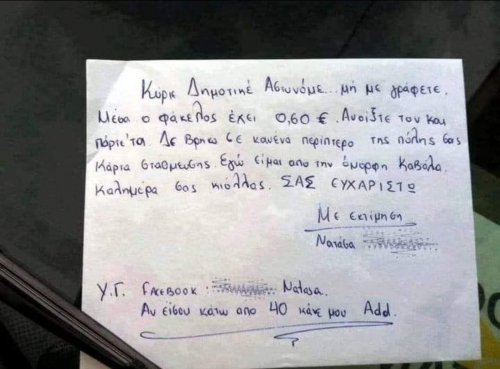 Κύριε Δημοτικέ Αστυνόμε... μή με γράφετε.
Μέσα ο φάκελος έχει 0,60 €. Ανοίξτε τον και
πάρτε τα. Δε βρήκα σε κανένα περίπτερο της πόλης σας
Κάρτα στάθμευσης Εγώ είμαι απο την όμορφη Καβάλα.
Καλημέρα σας κιόλας. ΣΑΣ ΕΥΧΑΡΙΣΤΩ
Με εκτίμηση
Νατάσα
Υ.Γ. FACEBOOK Natasa.
Αν είσαι κάτω απο 40 κάνε μου Add.